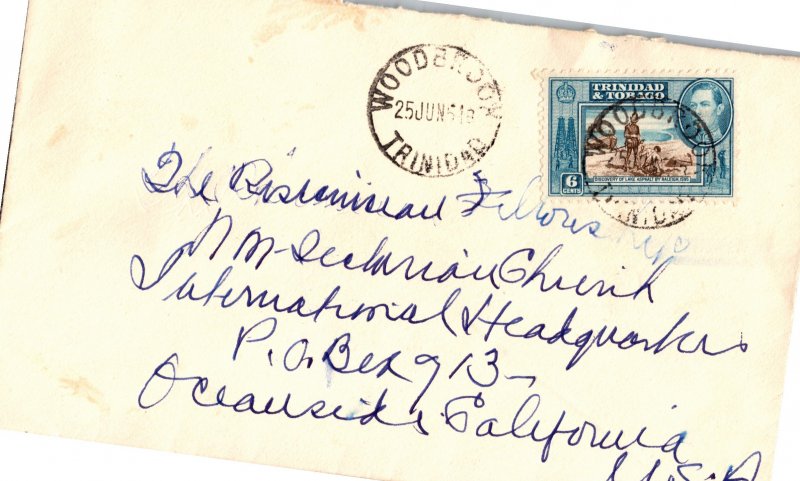 WOODBROOK
25JUN51
TRINIDAD
TRINIDAD
& TOBAGO
DISCOVERY OF LAKE ASPHALT BY RALEIGH 1595
6
CENTS
WOODBROOK
TRINIDAD
The Fellowship
Non-Sectarian Church
International Headquarters
P.O. Box 913-
Oceanside, California
U.S.A